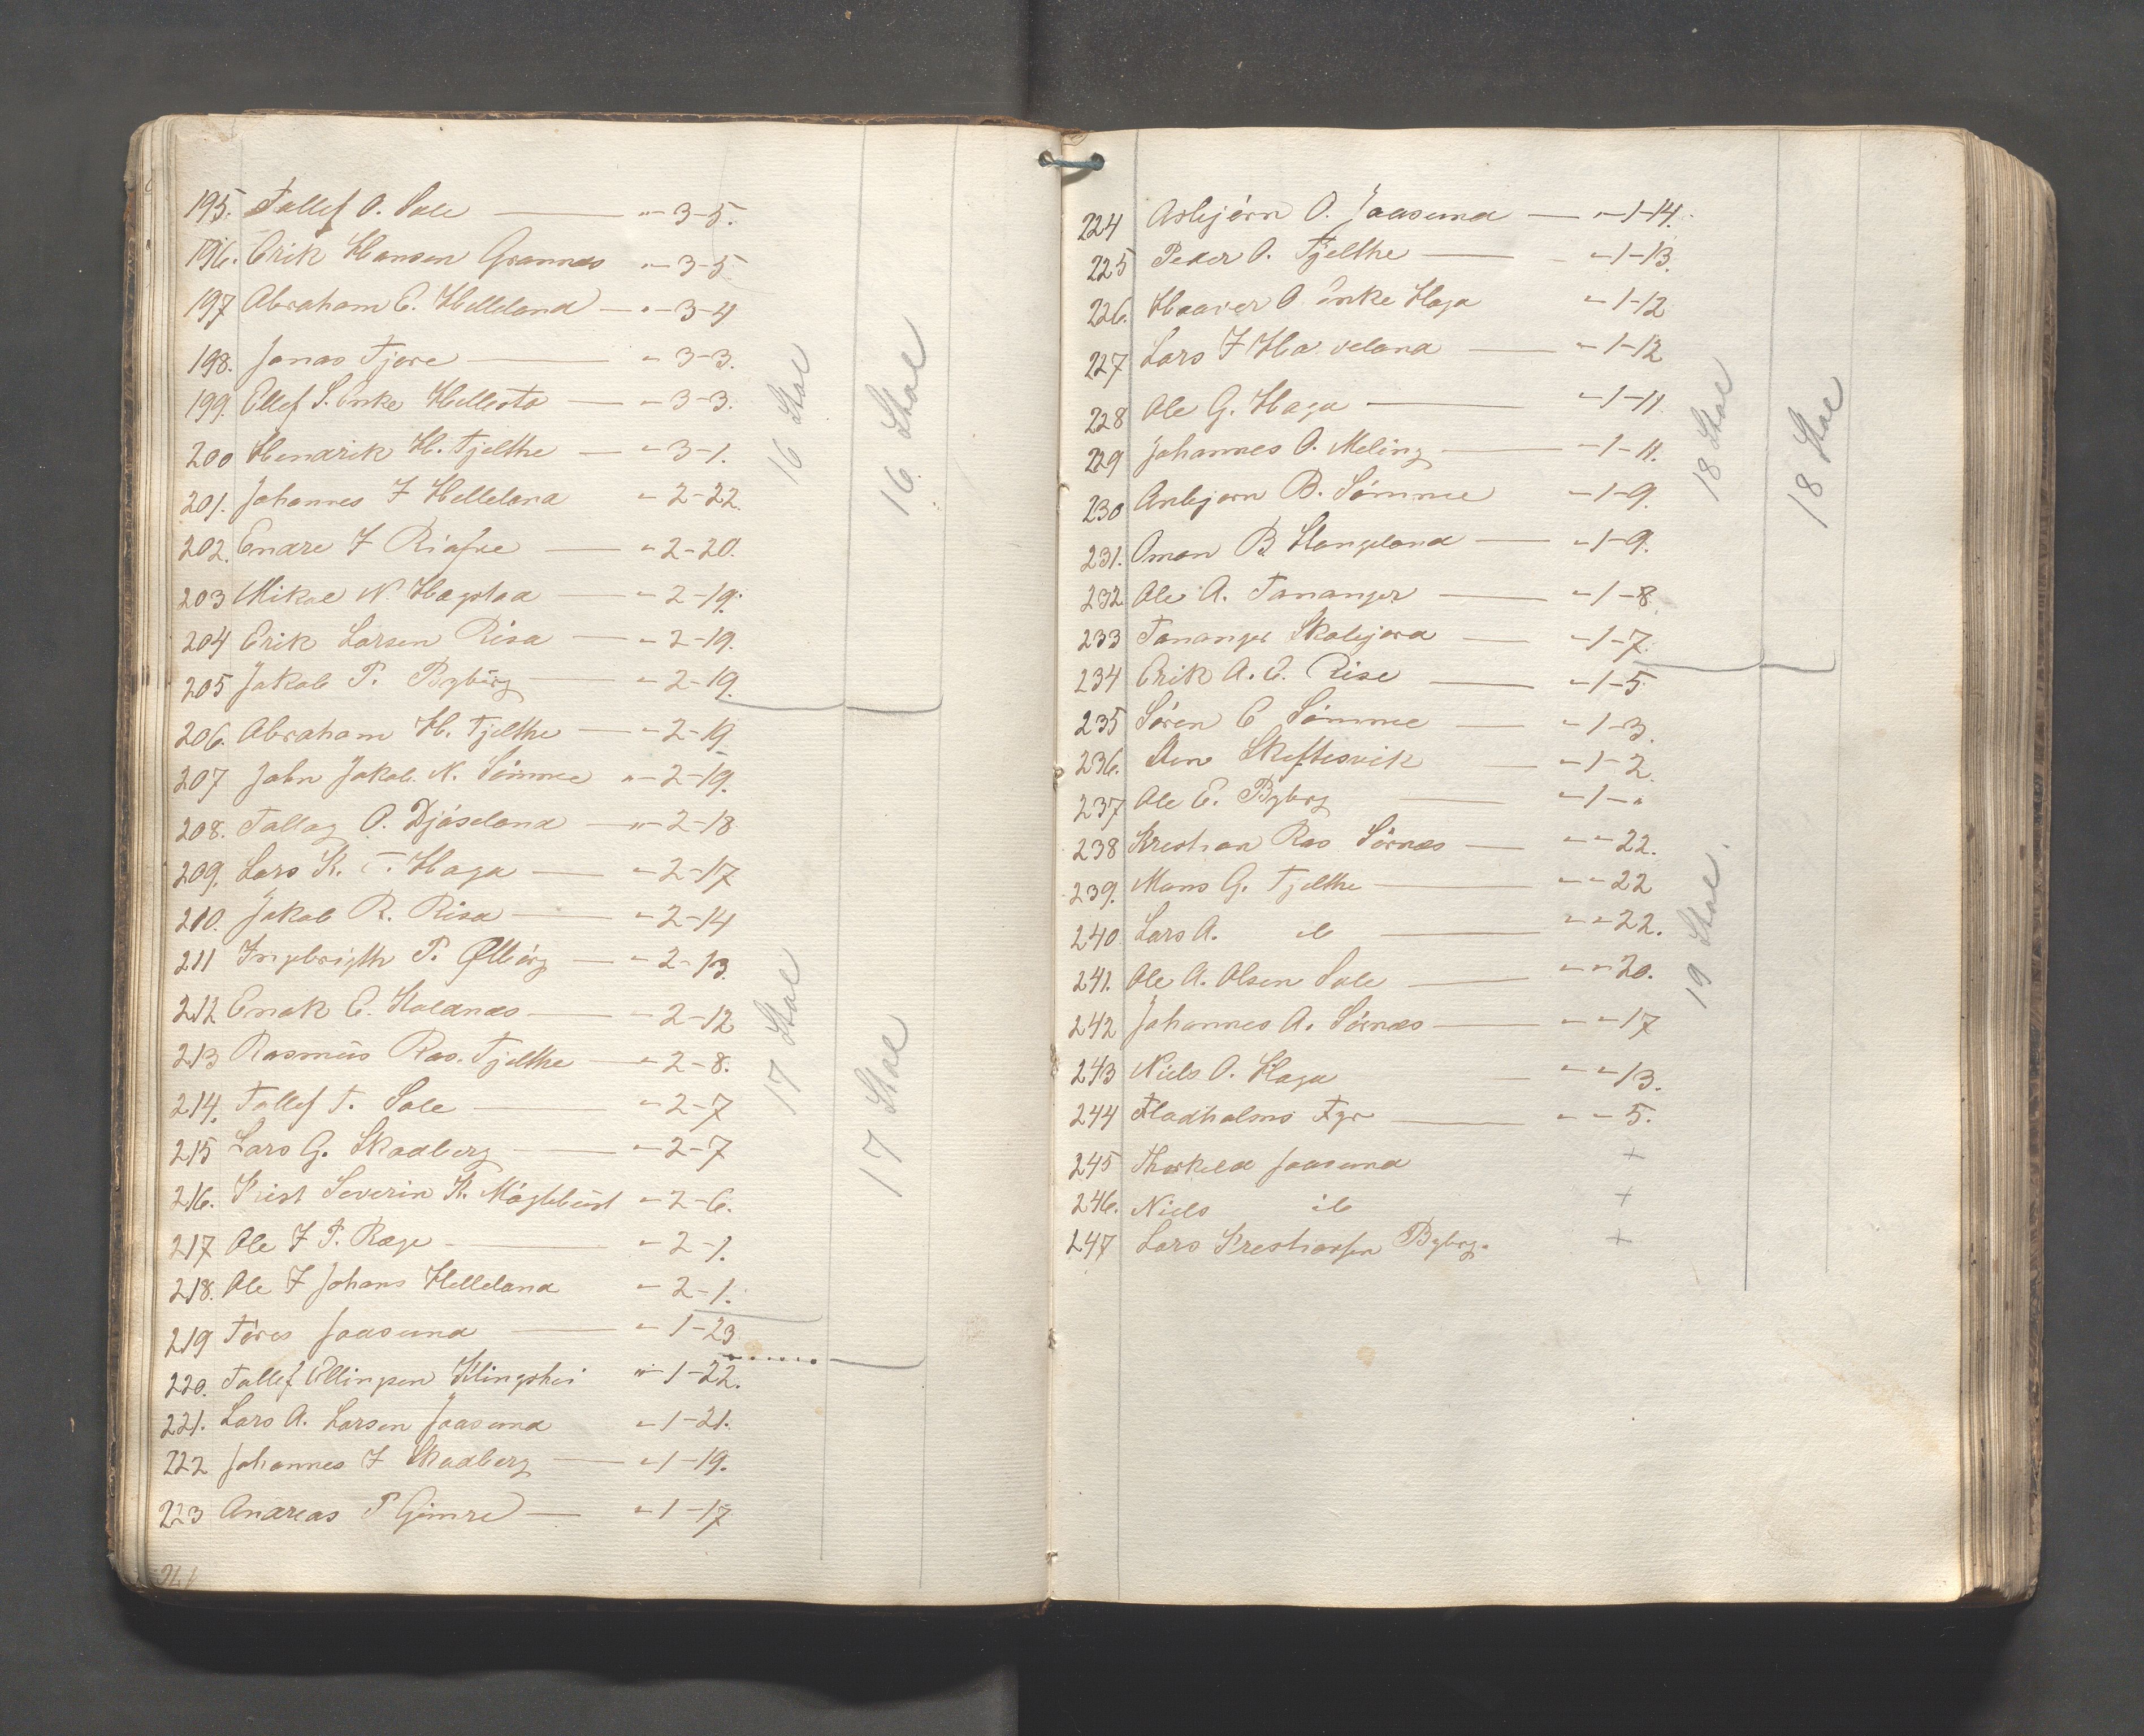 195. Tollef O. Sole — „-3-5.
196. Erik Hansen Grannes „-3-5
197 Abraham E. Helleland — „-3-4
198. Jonas Tjore — „-3-3.
199. Ellef S. Enke Hellestø — „-3-3.
200 Hendrik H. Tjelthe — „-3-1.
201. Johannes I Helleland „-2-22.
202. Endre I — „-2-20.
203 Mikal N. Hagstad — „-2-19.
204 Erik Larsen Risa — „-2-19.
205 Jakob P. Byberg — „-2-19.
206. Abraham H. Tjelthe — „-2-19
207 John Jakob N. Sømme „-2-19.
208. Tollag O. Djøseland — „-2-18
209. Lars K. T. Haga — „-2-17
210. Jakob R. Risa — „-2-14
211 Ingebrigth P. Ølbørg — „-2-13.
212 Enok E. Koldnæs — „-2-12
213 Rasmus Ras. Tjelthe — „-2-8.
214. Tollef T. Sole — „-2-7
215 Lars G. Skadberg — „-2-7
216. Krist Severin K. Møgleburst „-2-6.
217 Ole I P. Ræge — „-2-1.
218. Ole I Johans Helleland „-2-1.
219 Tøres Jaasund — „-1-23
220. Tollef Ellingsen Klingshei „-1-22.
221. Lars A. Larsen Jaasund „-1-21.
222 Johannes I Skadberg — „-1-19.
223 Andreas P Gimre — „-1-17
16 Skal
16 Skal
17 Skal
17 Skal
224 Asbjørn O. Jaasund — „-1-14.
225 Peder O. Tjelthe — „-1-13.
226. Haaver O. Enke Haga „-1-12
227 Lars I Haveland — „-1-12
228 Ole G. Haga — „-1-11.
229 Johannes O. Meling — „-1-11.
230 Anbjørn B. Sømme „-1-9.
231. Oman B Hangeland — „-1-9.
232 Ole A. Tananger — „-1-8.
233 Tananger Skolejord — „-1-7.
234 Erik A. E. Rise — „-1-5
235 Søren E Sømme — „-1-3.
236. Skeftesvik — „-1-2.
237 Ole E. Byberg — „-1-„
238 Kristian Ras Sørnæs — „-„-22.
239. Mons G. Tjelthe — „-„-22
240 Lars A. ib — „-„-22.
241. Ole A. Olsen Sole — „-„-20.
242 Johannes A. Sørnæs — „-„-17
243 Niels O. Haga — „-„-13.
244 Fladholms Fyr — „-„-5.
245 Thorkild Jaasund +
246. Niels ib +
247 Lars Krestiansen Byberg. +
18 Skal
18 Skal
19 Skal.